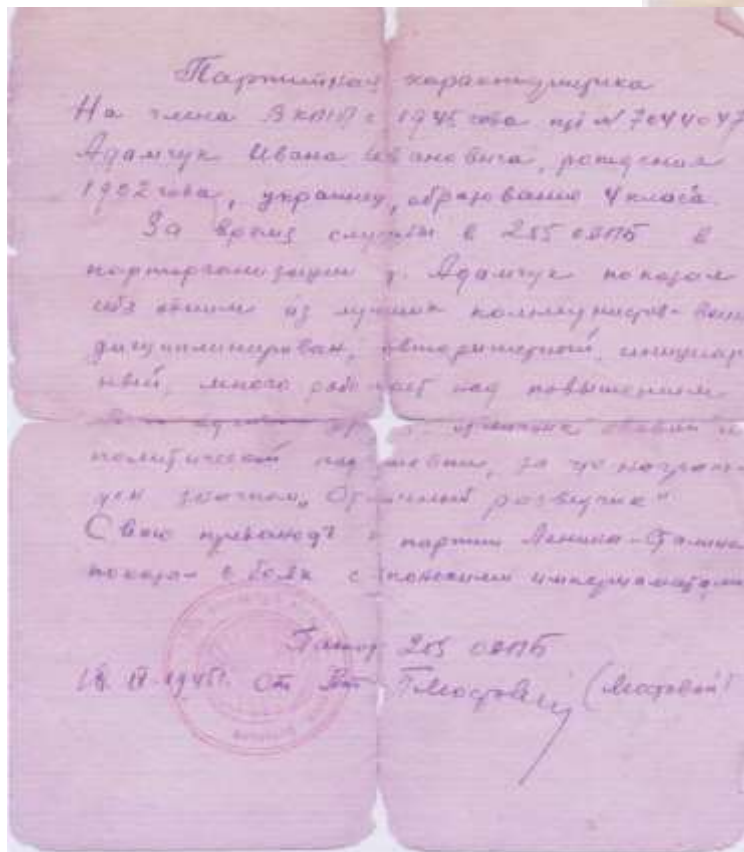 Партийная характеристика
На члена ВКП(б) с 1945 года п/б №7044047
Адамчук Ивана Ивановича, рождения
1902 года, украинец, образование 4 класа.
За время службы в 255
парторганизации т. Адамчук показал
себя одним из лучших коммунистов
дисциплинирован, авторитетный, инициатив
ный, много работает над повышением
политической за что награж
ден значком „Отличный разведчик"
Свою преданость партии Ленина-Сталина
показал в боях с японскими империалистами
Парторг 255
1945г. Ст (Мостовой)